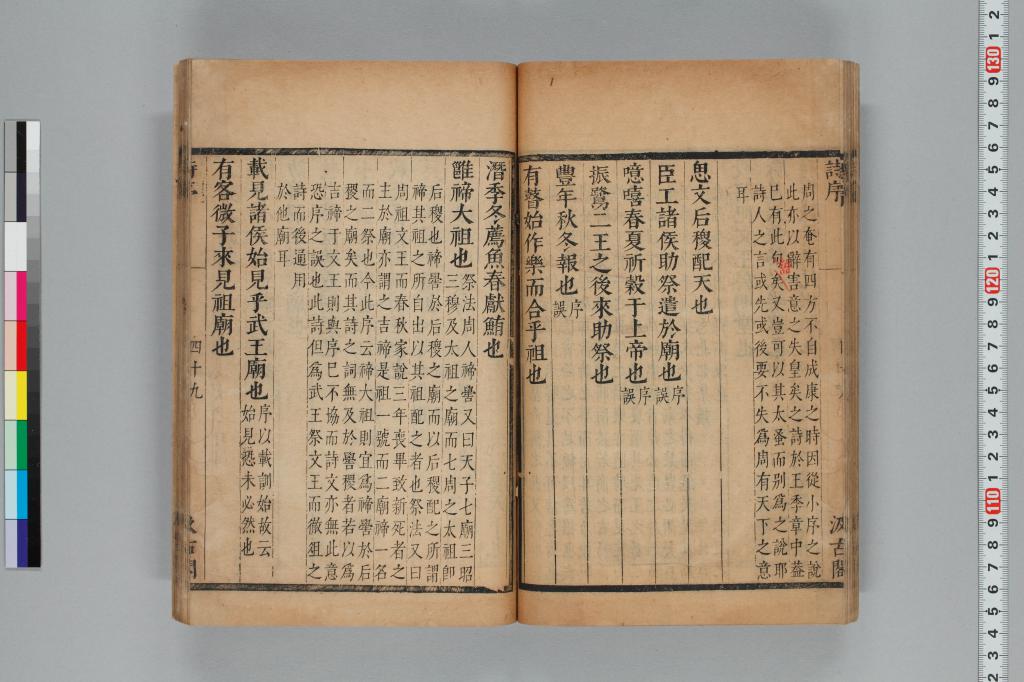 詩序
汲古閣
周之奄有四方不自成康之時因從小序之說
此亦以辭害意之失皇矣之詩於王季章中蓋
已有此句矣又豈可以其太蚤而別為之說耶
詩人之言或先或後要不失為周有天下之意
耳
思文后稷配天也
臣工諸侯助祭遣於廟也序
誤
噫嘻春夏祈穀于上帝也序
誤
振鷺二王之後來助祭也
豐年秋冬報也序
誤
有瞽始作樂而合乎祖也
潛季冬薦魚春獻鮪也
雝禘大祖也祭法周人禘嚳又曰天子七廟三昭
三穆及太祖之廟而七周之太祖即
后稷也禘嚳於后稷之廟而以后稷配之所謂
禘其祖之所自出以其祖配之者也祭法又曰
周祖文王而春秋家說三年喪畢致新死者之
主於廟亦謂之吉禘是祖一號而二廟禘一名
而二祭也今此序云禘大祖則宜為禘嚳於后
稷之廟矣而其詩之詞無及於嚳稷者若以為
吉禘于文王則與序已不協而詩文亦無此意
恐序之誤也此詩但為武王祭文王而徹俎之
詩而後通用
於他廟耳
載見諸侯始見乎武王廟也序以載訓始故云
始見恐未必然也
有客微子來見祖廟也
四十九